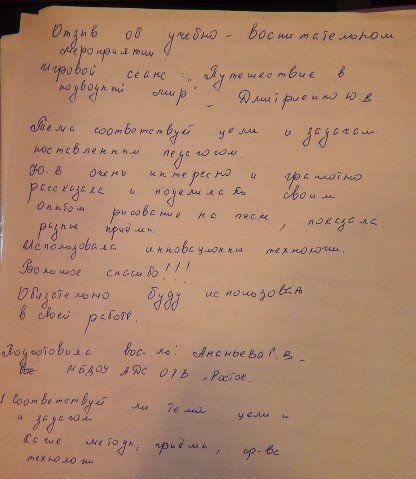 Отзыв об учебно - воспитательном
мероприятии
игровой сеанс: „Путешествие в
подводный мир" - Дмитриенко Ю.В
Тема соответствует цели и задачам
поставленным педагогом.
Ю.В очень интересно и грамотно
рассказала и поделилась своим
опытом рисование на песке, показала
разные приёмы.
Использовала инновационные технологии.
Большое спасибо!!!
Обязательно буду использовать
в своей работе.
Подготовила вос-ль: Ананьева Г.В
МБДОУ ОРВ „Росток.
1 Соответствует ли тема цели и
и задачам
Какие методы, приёмы, ср-ва
технологии